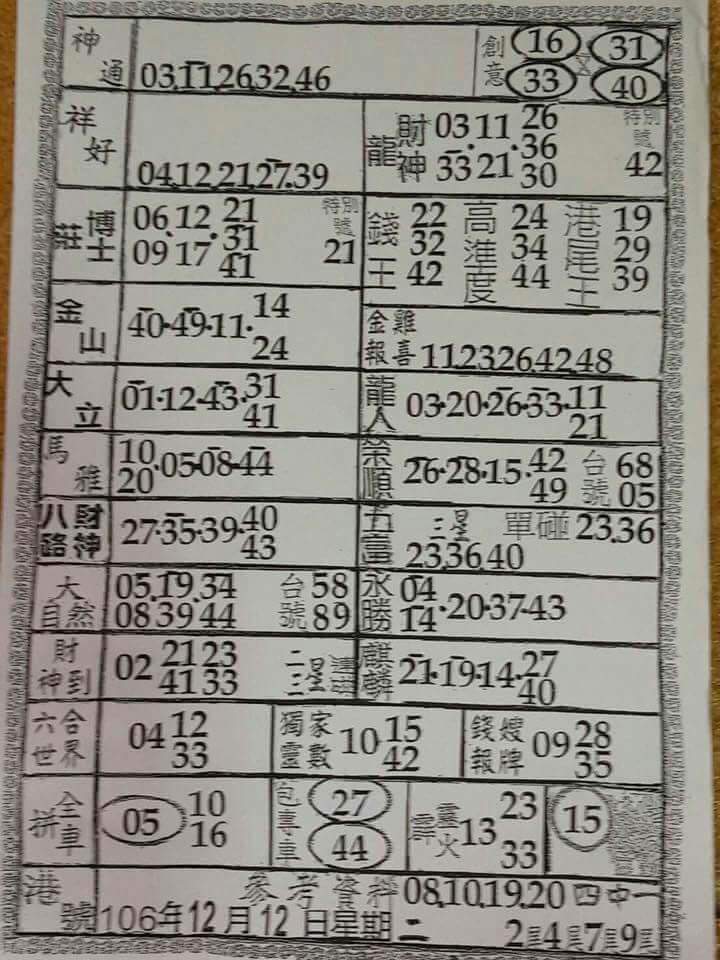 神通 03.11.26.32.46 創意 16 31 33 40
祥好 04.12.21.27.39
龍 財神 03.11.26 36 33.21.30 特別號 42
莊 博士 06.12.21 31 09.17 41 特別號 21
錢王 22 32 42 高進度 24 34 44 港尾王 19 29 39
金山 40-49-11-14 24
金雞報喜 11.23.26.42.48
大立 01-12-43-31 41
龍人 03-20-26-33-11 21
馬雅 10 20-05-08-44
榮順 26-28-15-42 49 台號 68 05
八路財神 27-35-39-40 43
五富 三星 單碰 23.36
23.36.40
大自然 05.19.34 08.39.44 台號 58 89
永勝 04 14-20-37-43
財神到 02 21 23 41 33 二三星連碰
麒麟 21-19-14-27 40
六合世界 04 12 33
獨家靈數 10-15 42
錢嫂報牌 09 28 35
全車拼 05 10 16
包專車 27 44
霹靈火 13 23 33
15
港號 參考資料 08.10.19.20 四中一
106年12月12日星期二 2尾4尾7尾9尾